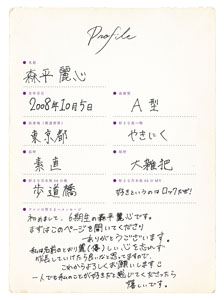 Profile
森平麗心
2008年10月5日
A型
東京都
やきにく
素直
大雑把
歩道橋
好きというのはロックだぜ!
初めまして、6期生の森平麗心です。
まずはこのページを開いてくださり
ありがとうございます。
私は名前のとおり麗(優)しい心を忘れず
成長していけたら良いなと思ってますので、
これからよろしくお願いします
一人でも私のことが好きだと感じてくださったら
嬉しいです。